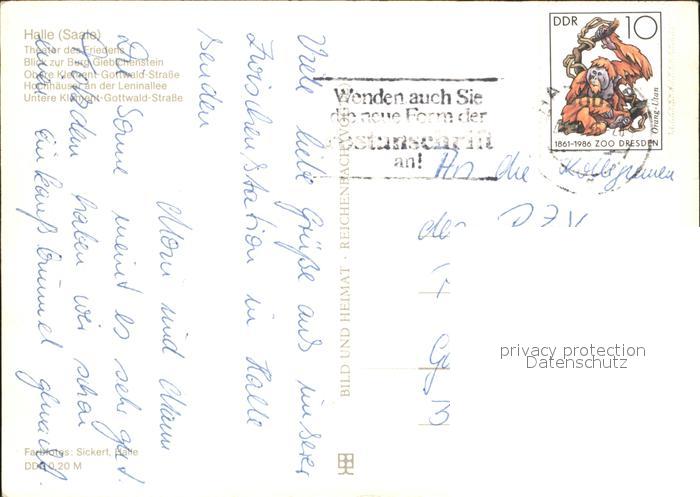 Halle (Saale)
Theater des Friedens
Blick zur Burg Giebichenstein
Obere Klement-Gottwald-Straße
Hochhäuser an der Leninallee
Untere Klement-Gottwald-Straße
Viele liebe Grüße aus unserer
Zwischenstation in Halle
senden
Mann
Die Sonne meint es sehr gut.
Trotzdem haben wir schon
einen Einkaufsbummel gemacht.
Farbfotos: Sickert, Halle
DDR 0,20 M
BILD UND HEIMAT · REICHENBACH
Wenden auch Sie
die neue Form der
Postanschrift
an!
DDR 10
Orang-Utan
1861-1986 ZOO DRESDEN
An die Kolleginnen
der
privacy protection
Datenschutz